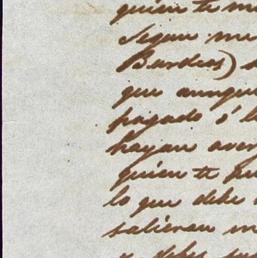 quien te m
Segun me
Burdeos) s
que aunque
pagado ó l
hayan aver
quien te pu
lo que debe
salieran m
y debes su